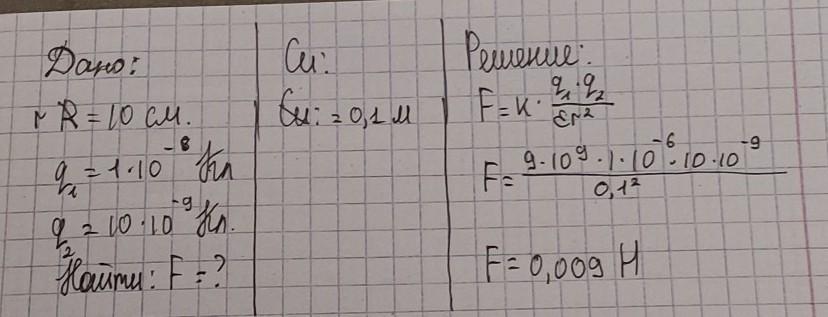 Дано:
r R = 10 см.
q₁ = 1·10⁻⁸ Кл
q₂ = 10·10⁻⁹ Кл.
Найти: F = ?
Си:
Си: = 0,1 м
Решение:
F = к · q₁·q₂ / εr²
F = 9·10⁹·1·10⁻⁶·10·10⁻⁹ / 0,1²
F = 0,009 Н